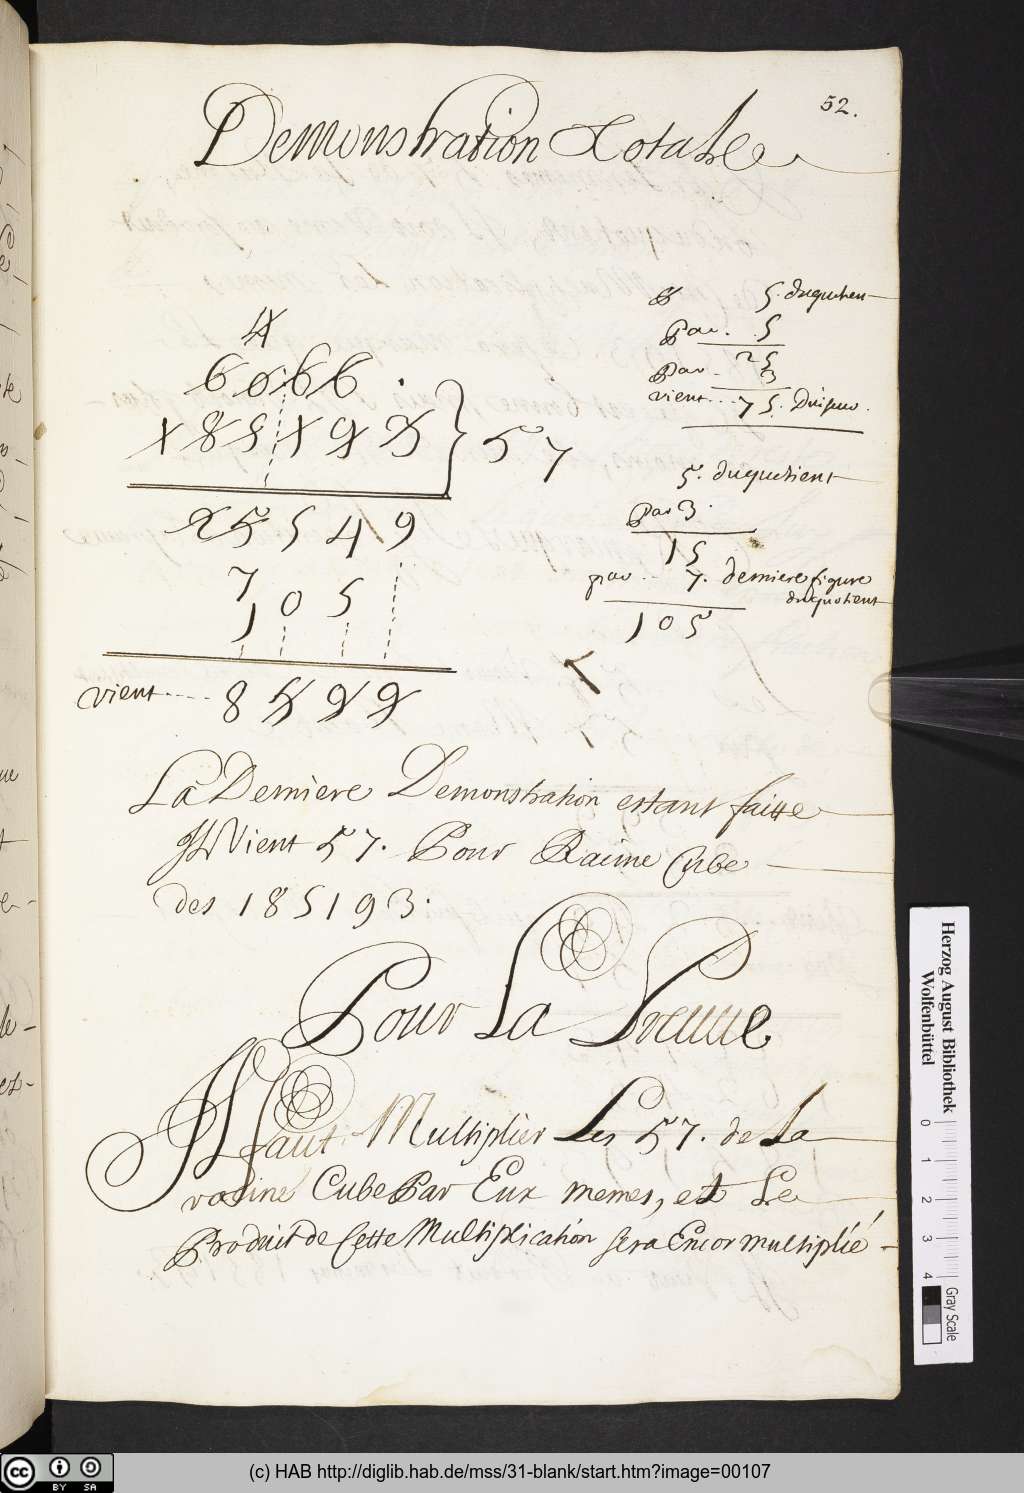 52.
Demonstration Totalle
4
6066
185193 } 57
25549
7
105
vient .... 8599
5. duquotien
Par. 5
25
Par. 3
vient... 75. Diviseur.
5. duquotient
par 3.
15
par .. 7. derniere figure
duquotient
105
La Derniere Demonstration estant faitte
Il Vient 57. Pour Racine Cube
des 185193.
Pour La Preuue
Il faut Multiplier Les 57. de La
racine Cube Par Eux memes, et Le
Produit de Cette Multiplication sera Encor multiplié
Herzog August Bibliothek
Wolfenbüttel
0 1 2 3 4
Gray Scale
cc BY SA
(c) HAB http://diglib.hab.de/mss/31-blank/start.htm?image=00107